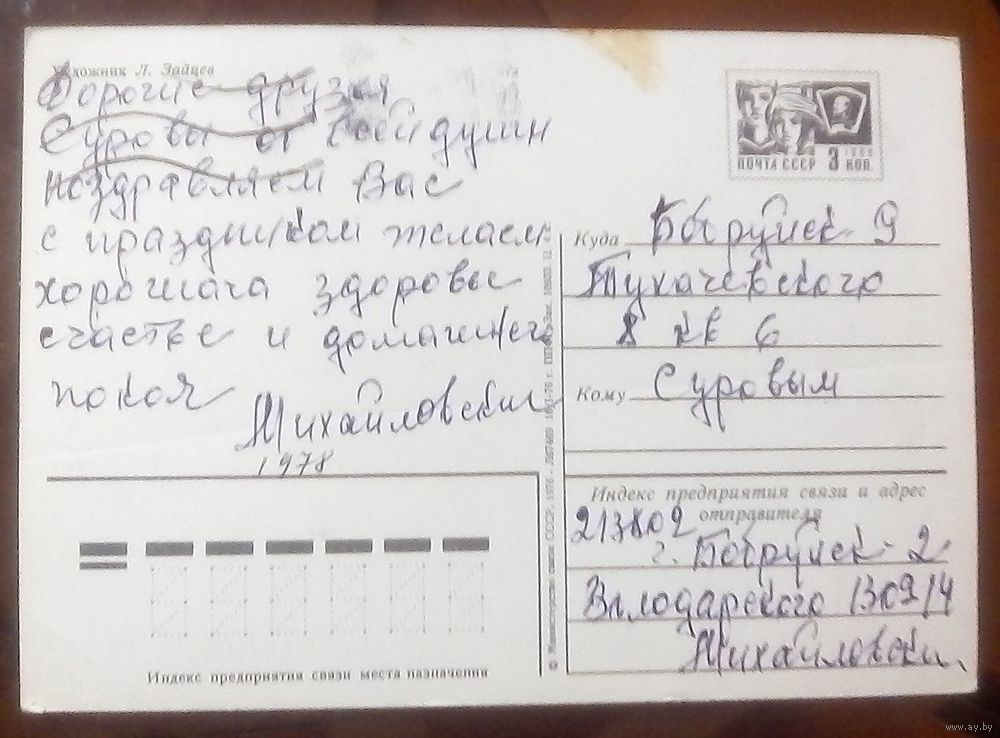 Художник Л. Зайцев
Дорогие друзья
Суровы от всей души
поздравляем Вас
с праздником желаем
хорошага здоровье
счастье и домашнего
покоя
Михайловски
1978
ПОЧТА СССР 3 КОП.
1966
Куда Бобруйск 9
Тухачевского
8 кв 6
Кому Суровым
Индекс предприятия связи и адрес
отправителя
213802
г. Бобруйск-2
Влодарского
Михайловски
© Министерство связи СССР. 1976
Индекс предприятия связи места назначения
www.ay.by